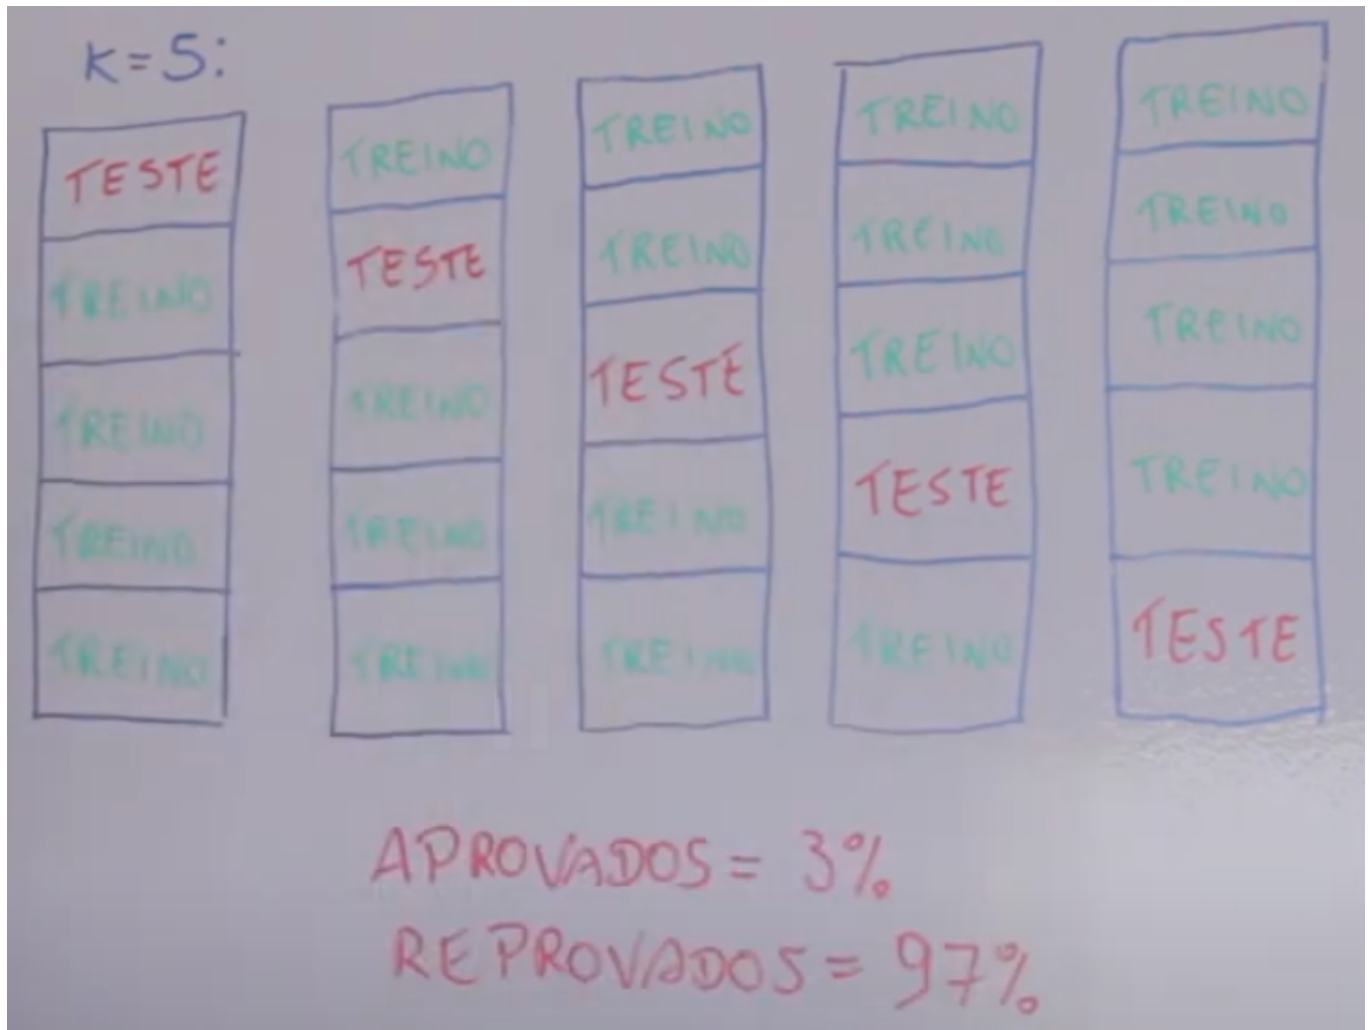 K=5:
TESTE
TREINO
TREINO
TREINO
TREINO
TREINO
TESTE
TREINO
TREINO
TREINO
TREINO
TREINO
TESTE
TREINO
TREINO
TREINO
TREINO
TREINO
TESTE
TREINO
TREINO
TREINO
TREINO
TREINO
TESTE
APROVADOS = 3%
REPROVADOS = 97%